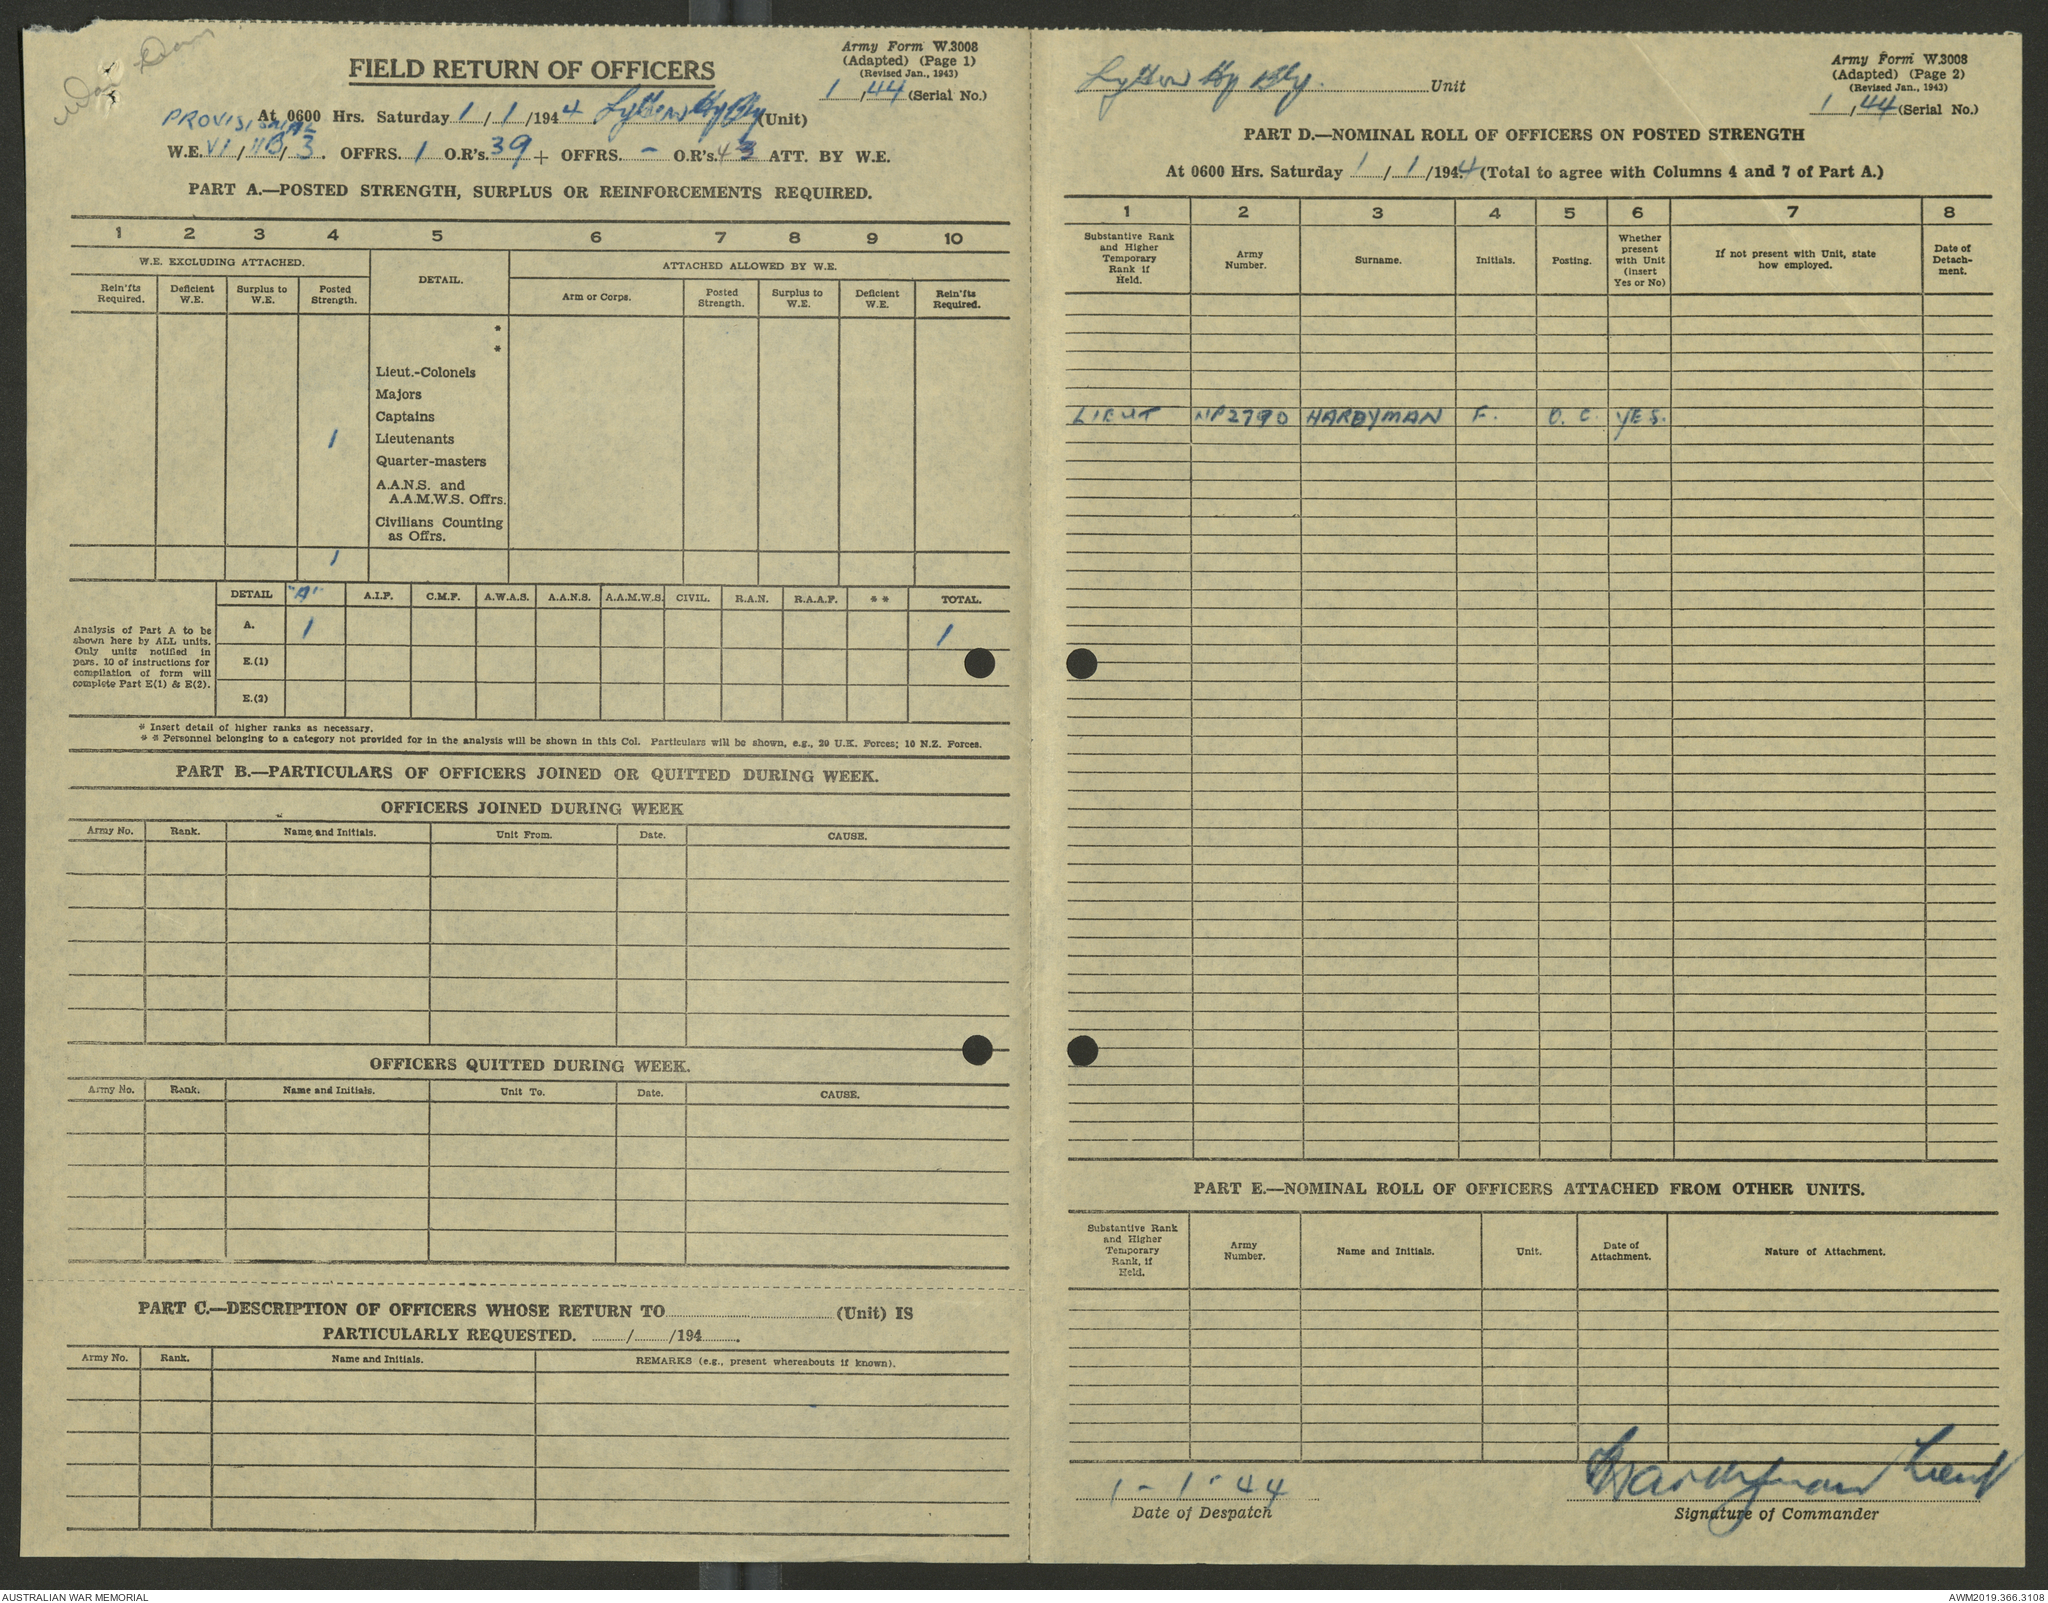 War Diary
FIELD RETURN OF OFFICERS
Army Form W.3008
(Adapted) (Page 1)
(Revised Jan., 1943)
1/44 (Serial No.)
At 0600 Hrs. Saturday 1/1/1944 Lytton Hy Bty (Unit)
PROVISIONAL
W.E. VI/11B/3. OFFRS. 1 O.R's. 39 + OFFRS. - O.R's. 43 ATT. BY W.E.
PART A.—POSTED STRENGTH, SURPLUS OR REINFORCEMENTS REQUIRED.
1 2 3 4 5 6 7 8 9 10
W.E. EXCLUDING ATTACHED. DETAIL. ATTACHED ALLOWED BY W.E.
Rein'fts Required. Deficient W.E. Surplus to W.E. Posted Strength. Arm or Corps. Posted Strength. Surplus to W.E. Deficient W.E. Rein'fts Required.
*
*
Lieut.-Colonels
Majors
Captains
1 Lieutenants
Quarter-masters
A.A.N.S. and
A.A.M.W.S. Offrs.
Civilians Counting
as Offrs.
1
DETAIL "A" A.I.F. C.M.F. A.W.A.S. A.A.N.S. A.A.M.W.S. CIVIL. R.A.N. R.A.A.F. * * TOTAL.
Analysis of Part A to be
shown here by ALL units.
Only units notified in
para. 10 of instructions for
compilation of form will
complete Part E(1) & E(2).
A. 1 1
E.(1)
E.(2)
* Insert detail of higher ranks as necessary.
* * Personnel belonging to a category not provided for in the analysis will be shown in this Col. Particulars will be shown, e.g., 20 U.K. Forces; 10 N.Z. Forces.
PART B.—PARTICULARS OF OFFICERS JOINED OR QUITTED DURING WEEK.
OFFICERS JOINED DURING WEEK
Army No. Rank. Name and Initials. Unit From. Date. CAUSE.
OFFICERS QUITTED DURING WEEK.
Army No. Rank. Name and Initials. Unit To. Date. CAUSE.
PART C.—DESCRIPTION OF OFFICERS WHOSE RETURN TO (Unit) IS
PARTICULARLY REQUESTED. / /194 .
Army No. Rank. Name and Initials. REMARKS (e.g., present whereabouts if known).
Lytton Hy Bty. Unit
Army Form W.3008
(Adapted) (Page 2)
(Revised Jan., 1943)
1/44 (Serial No.)
PART D.—NOMINAL ROLL OF OFFICERS ON POSTED STRENGTH
At 0600 Hrs. Saturday 1/1/1944 (Total to agree with Columns 4 and 7 of Part A.)
1 2 3 4 5 6 7 8
Substantive Rank and Higher Temporary Rank if Held. Army Number. Surname. Initials. Posting. Whether present with Unit (Insert Yes or No) If not present with Unit, state how employed. Date of Detachment.
LIEUT NP2790 HARDYMAN F. O.C. YES.
PART E.—NOMINAL ROLL OF OFFICERS ATTACHED FROM OTHER UNITS.
Substantive Rank and Higher Temporary Rank, if Held. Army Number. Name and Initials. Unit. Date of Attachment. Nature of Attachment.
1-1-44
Date of Despatch
Hardyman Lieut
Signature of Commander
AUSTRALIAN WAR MEMORIAL
AWM2019.366.3108